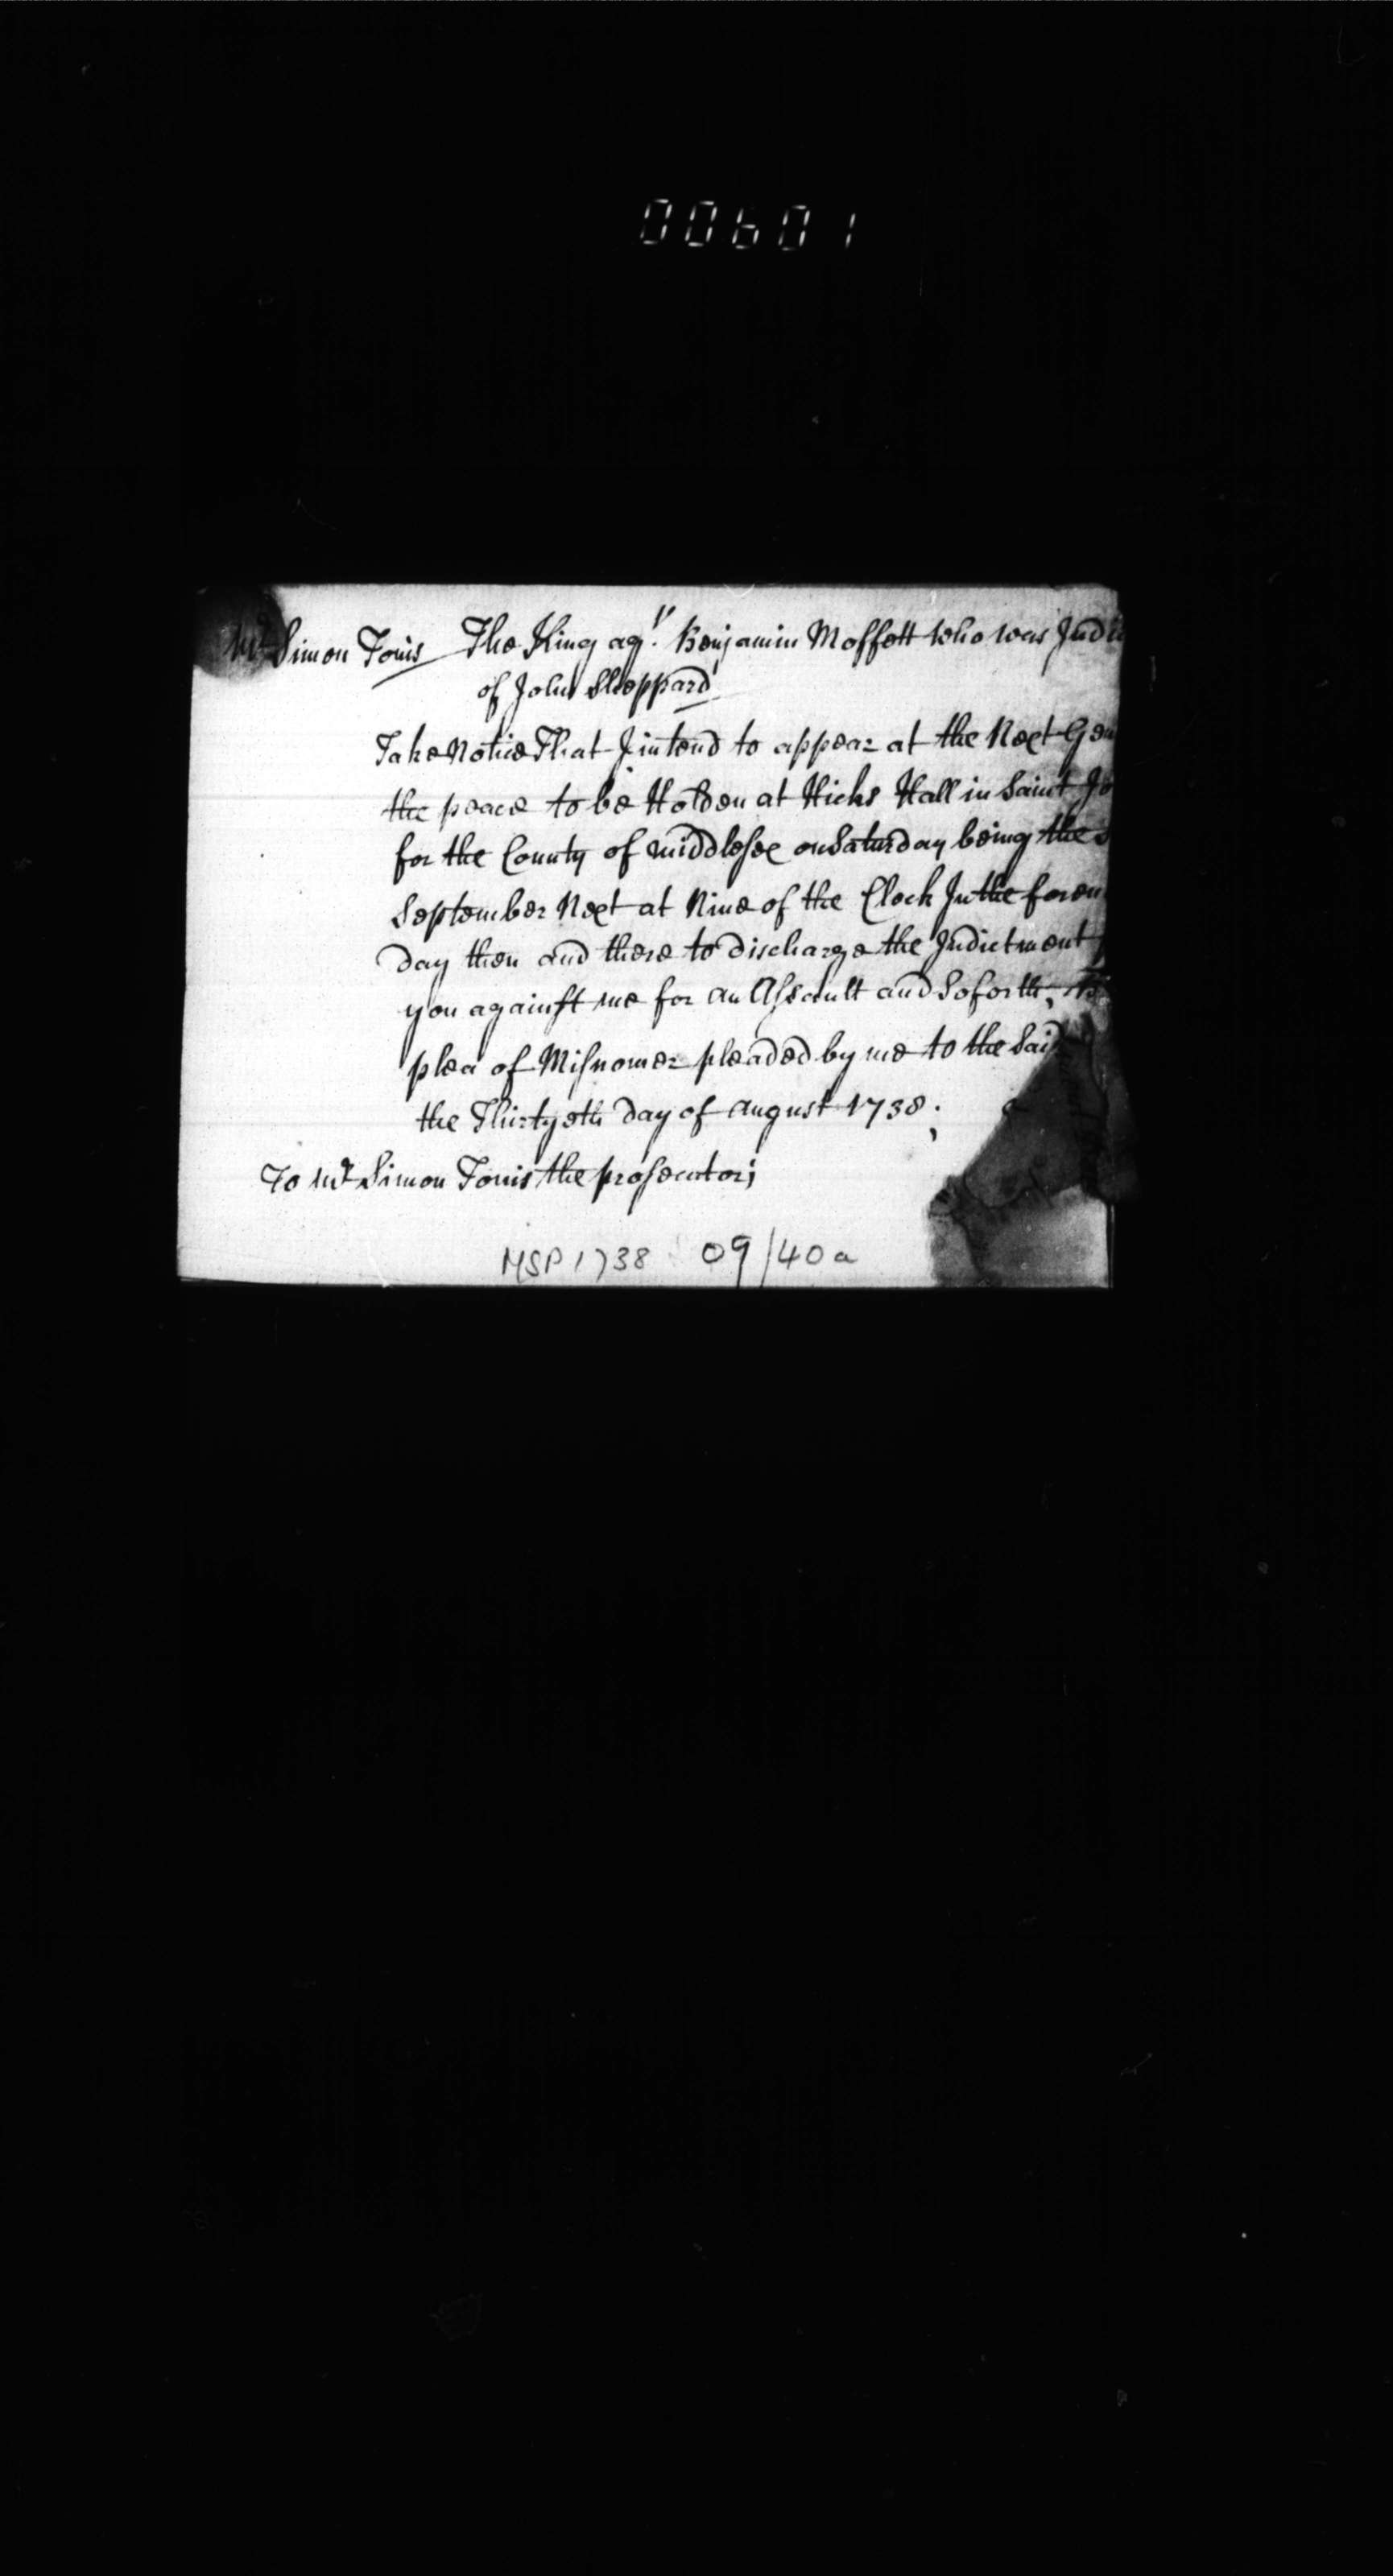 00601
Mr. Simon Touis The King agt. Benjamin Moffett who was Indi
of John Sheppard
Take Notice That I intend to appear at the Next Gen
the peace to be Holden at Hicks Hall in Saint Jo
for the County of Middlesex on Saturday being the
September Next at Nine of the Clock In the foren
day then and there to discharge the Indictment
you against me for an Assault and Soforth,
plea of Misnomer pleaded by me to the Said
the Thirtyeth day of August 1738;
To Mr. Simon Touis the prosecutor;
MSP 1738 09/40a